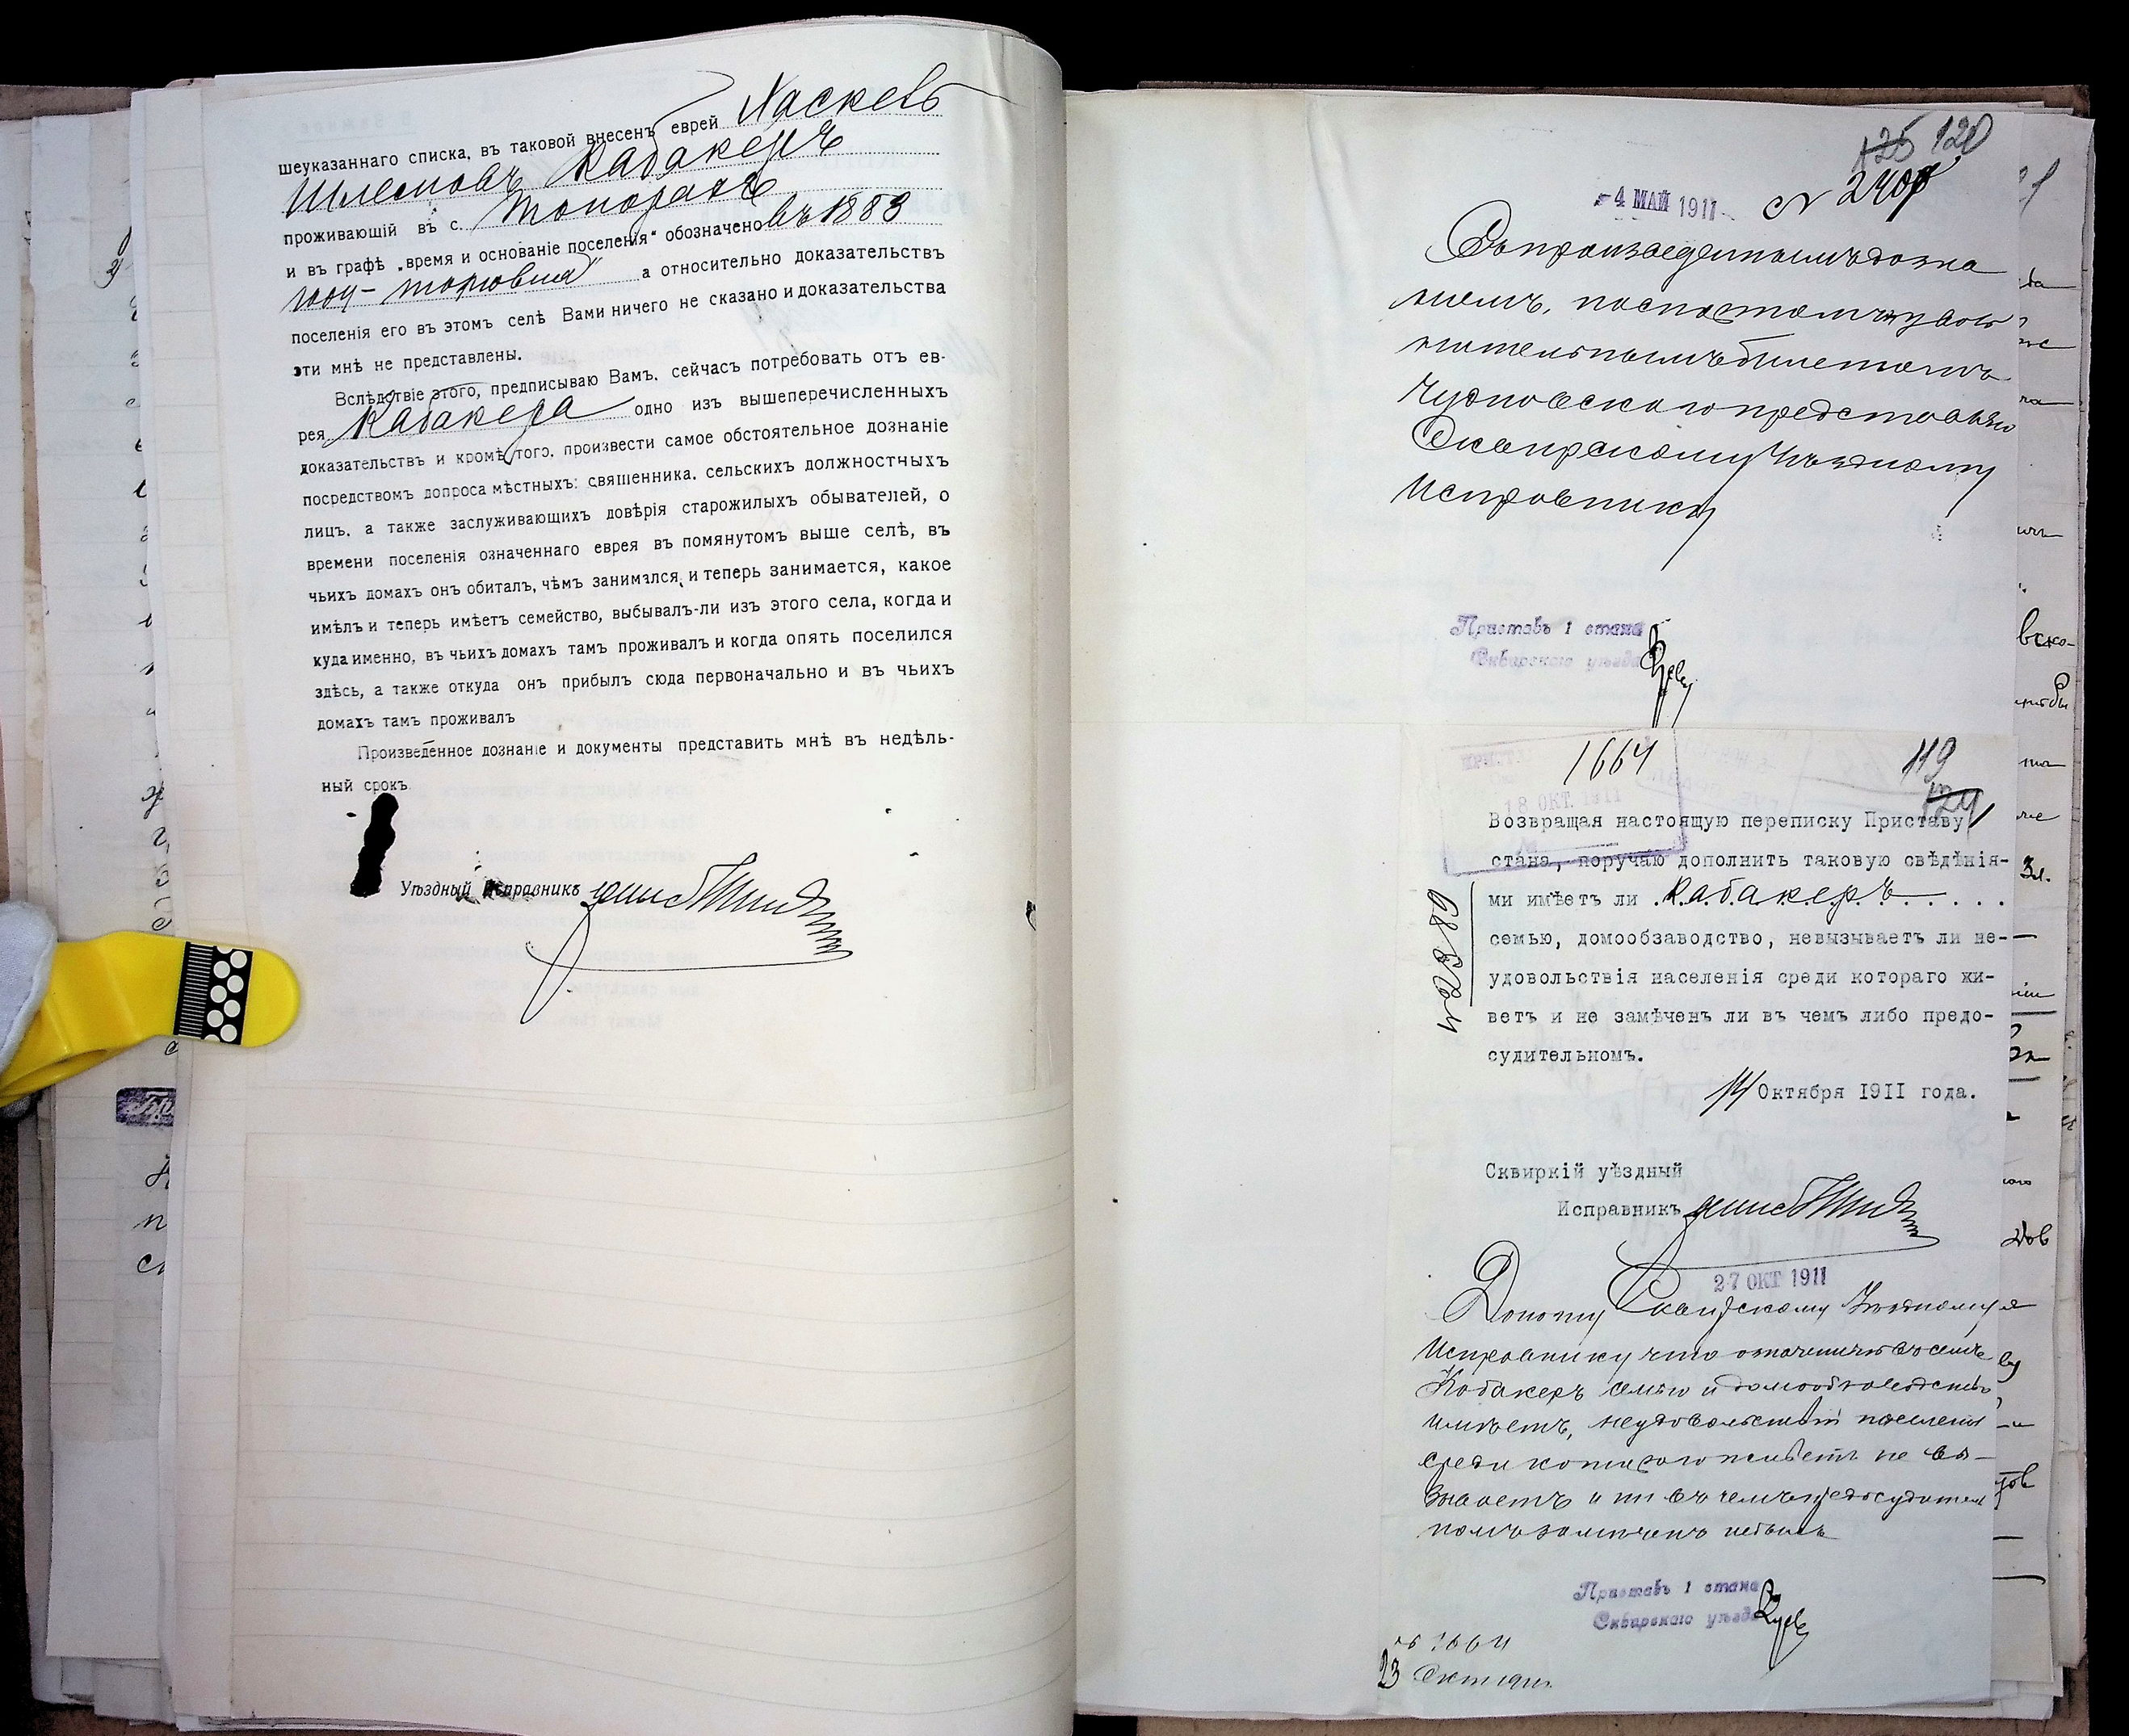 шеуказаннаго списка, въ таковой внесенъ еврей Хаскель
Шлемовъ Кабакеръ
проживающій въ с. Топорахъ
и въ графѣ „время и основаніе поселенія“ обозначено въ 1883
году – торговля“ а относительно доказательствъ
поселенія его въ этомъ селѣ Вами ничего не сказано и доказательства
эти мнѣ не представлены.
Вслѣдствіе этого, предписываю Вамъ, сейчасъ потребовать отъ ев-
рея Кабакера одно изъ вышеперечисленныхъ
доказательствъ и кромѣ того, произвести самое обстоятельное дознаніе
посредствомъ допроса мѣстныхъ: священника, сельскихъ должностныхъ
лицъ, а также заслуживающихъ довѣрія старожилыхъ обывателей, о
времени поселенія означеннаго еврея въ помянутомъ выше селѣ, въ
чьихъ домахъ онъ обиталъ, чѣмъ занимался, и теперь занимается, какое
имѣлъ и теперь имѣетъ семейство, выбывалъ-ли изъ этого села, когда и
куда именно, въ чьихъ домахъ тамъ проживалъ и когда опять поселился
здѣсь, а также откуда онъ прибылъ сюда первоначально и въ чьихъ
домахъ тамъ проживалъ
Произведенное дознаніе и документы представить мнѣ въ недѣль-
ный срокъ.
Уѣздный Исправникъ
125 120
-4 МАЙ 1911 № 2408
Съ произведеннымъ дозна
ніемъ,
билетомъ
Чудновскаго представляю
Сквирскому Уѣздному
Исправнику
Приставъ 1 стана
Сквирскаго уѣзда
1664 119
18 ОКТ. 1911 124
Возвращая настоящую переписку Приставу 1
стана, поручаю дополнить таковую свѣдѣнія-
ми имѣетъ ли Кабакеръ
семью, домообзаводство, невызываетъ ли не-
удовольствія населенія среди котораго жи-
ветъ и не замѣченъ ли въ чемъ либо предо-
судительномъ.
14 Октября 1911 года.
Сквиркій уѣздный
Исправникъ
27 ОКТ 1911
Доношу Сквирскому Уѣздному
Исправнику что означенный въ семъ
Кабакеръ семью и домообзаводство
имѣетъ, неудовольствій населенія
среди котораго живетъ не вы-
зываетъ и ни въ чемъ предосудитель
номъ замѣченъ небылъ
Приставъ 1 стана
Сквирскаго уѣзда
№ 1664
23 Окт 1911 г.